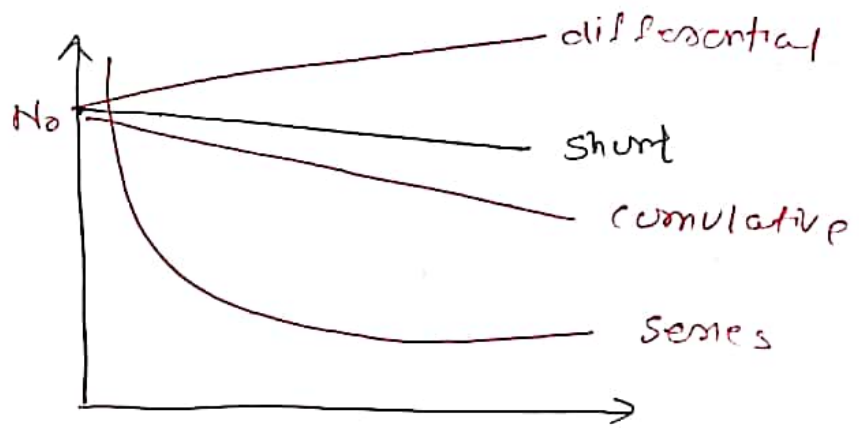 differential
No
shunt
cumulative
series